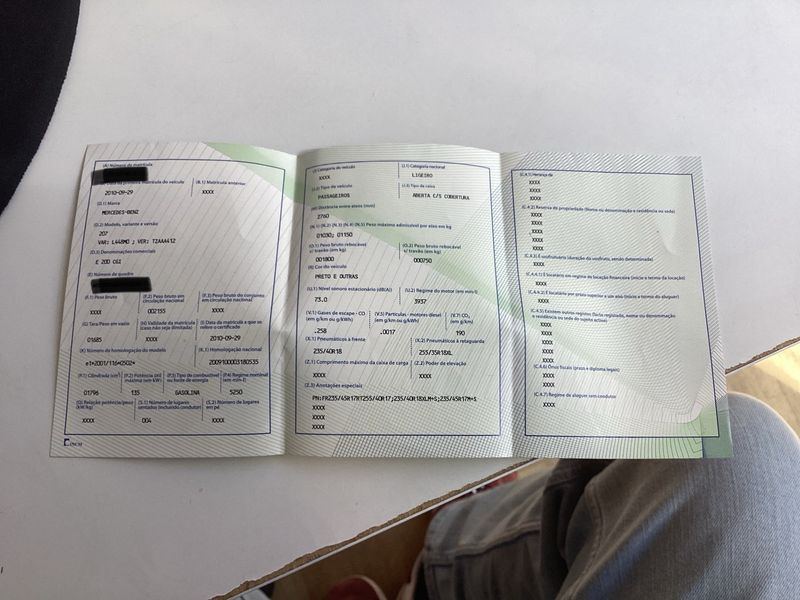 (A) Número de matrícula
(B) Data da primeira matrícula do veículo
(B.1) Matrícula anterior
2010-09-29
XXXX
(D.1) Marca
MERCEDES-BENZ
(D.2) Modelo, variante e versão
207
VAR: L448M0 ; VER: TZAAA412
(D.3) Denominações comerciais
E 200 CGI
(E) Número de quadro
(F.1) Peso Bruto
(F.2) Peso bruto em circulação nacional
(F.3) Peso bruto do conjunto em circulação nacional
XXXX
002155
XXXX
(G) Tara/Peso em vazio
(H) Validade da matrícula (caso não seja ilimitada)
(I) Data da matrícula a que se refere o certificado
01685
XXXX
2010-09-29
(K) Número de homologação do modelo
(K.1) Homologação nacional
e1*2001/116*0502*
2009100003180535
(P.1) Cilindrada (cm³)
(P.2) Potência útil máxima (em kW)
(P.3) Tipo de combustível ou fonte de energia
(P.4) Regime nominal (em min-1)
01796
135
GASOLINA
5250
(Q) Relação potência/peso (kW/kg)
(S.1) Número de lugares sentados (incluindo condutor)
(S.2) Número de lugares em pé
XXXX
004
XXXX
INCM
(J) Categoria do veículo
(J.1) Categoria nacional
XXXX
LIGEIRO
(J.2) Tipo de veículo
(J.3) Tipo de caixa
PASSAGEIROS
ABERTA C/S COBERTURA
(M) Distância entre eixos (mm)
2760
(N.1) (N.2) (N.3) (N.4) (N.5) Peso máximo admissível por eixo em kg
01030; 01150
(O.1) Peso bruto rebocável c/ travão (em kg)
(O.2) Peso bruto rebocável s/ travão (em kg)
001800
000750
(R) Cor do veículo
PRETO E OUTRAS
(U.1) Nível sonoro estacionário (dB(A))
(U.2) Regime do motor (em min-1)
73.0
3937
(V.1) Gases de escape - CO (em g/km ou g/kWh)
(V.5) Partículas - motores diesel (em g/km ou g/kWh)
(V.7) CO₂ (em g/km)
.258
.0017
190
(X.1) Pneumáticos à frente
(X.2) Pneumáticos à retaguarda
235/40R18
255/35R18XL
(Z.1) Comprimento máximo da caixa de carga
(Z.2) Poder de elevação
XXXX
XXXX
(Z.3) Anotações especiais
PN:FRZ35/45R17RT255/40R17;235/40R18XLM+S;235/45R17M+S
XXXX
XXXX
XXXX
(C.4.1) Herança de
XXXX
XXXX
XXXX
(C.4.2) Reserva de propriedade (Nome ou denominação e residência ou sede)
XXXX
XXXX
XXXX
XXXX
XXXX
(C.4.3) É usufrutuário (duração do usufruto, sendo determinada)
XXXX
(C.4.4.1) É locatário em regime de locação financeira (início e termo da locação)
XXXX
(C.4.4.2) É locatário por prazo superior a um ano (início e termo do aluguer)
XXXX
(C.4.5) Existem outros registos (facto registado, nome ou denominação e residência ou sede do sujeito activo)
XXXX
XXXX
XXXX
XXXX
XXXX
(C.4.6) Ónus fiscal (prazo e diploma legal)
XXXX
XXXX
(C.4.7) Regime de aluguer sem condutor
XXXX